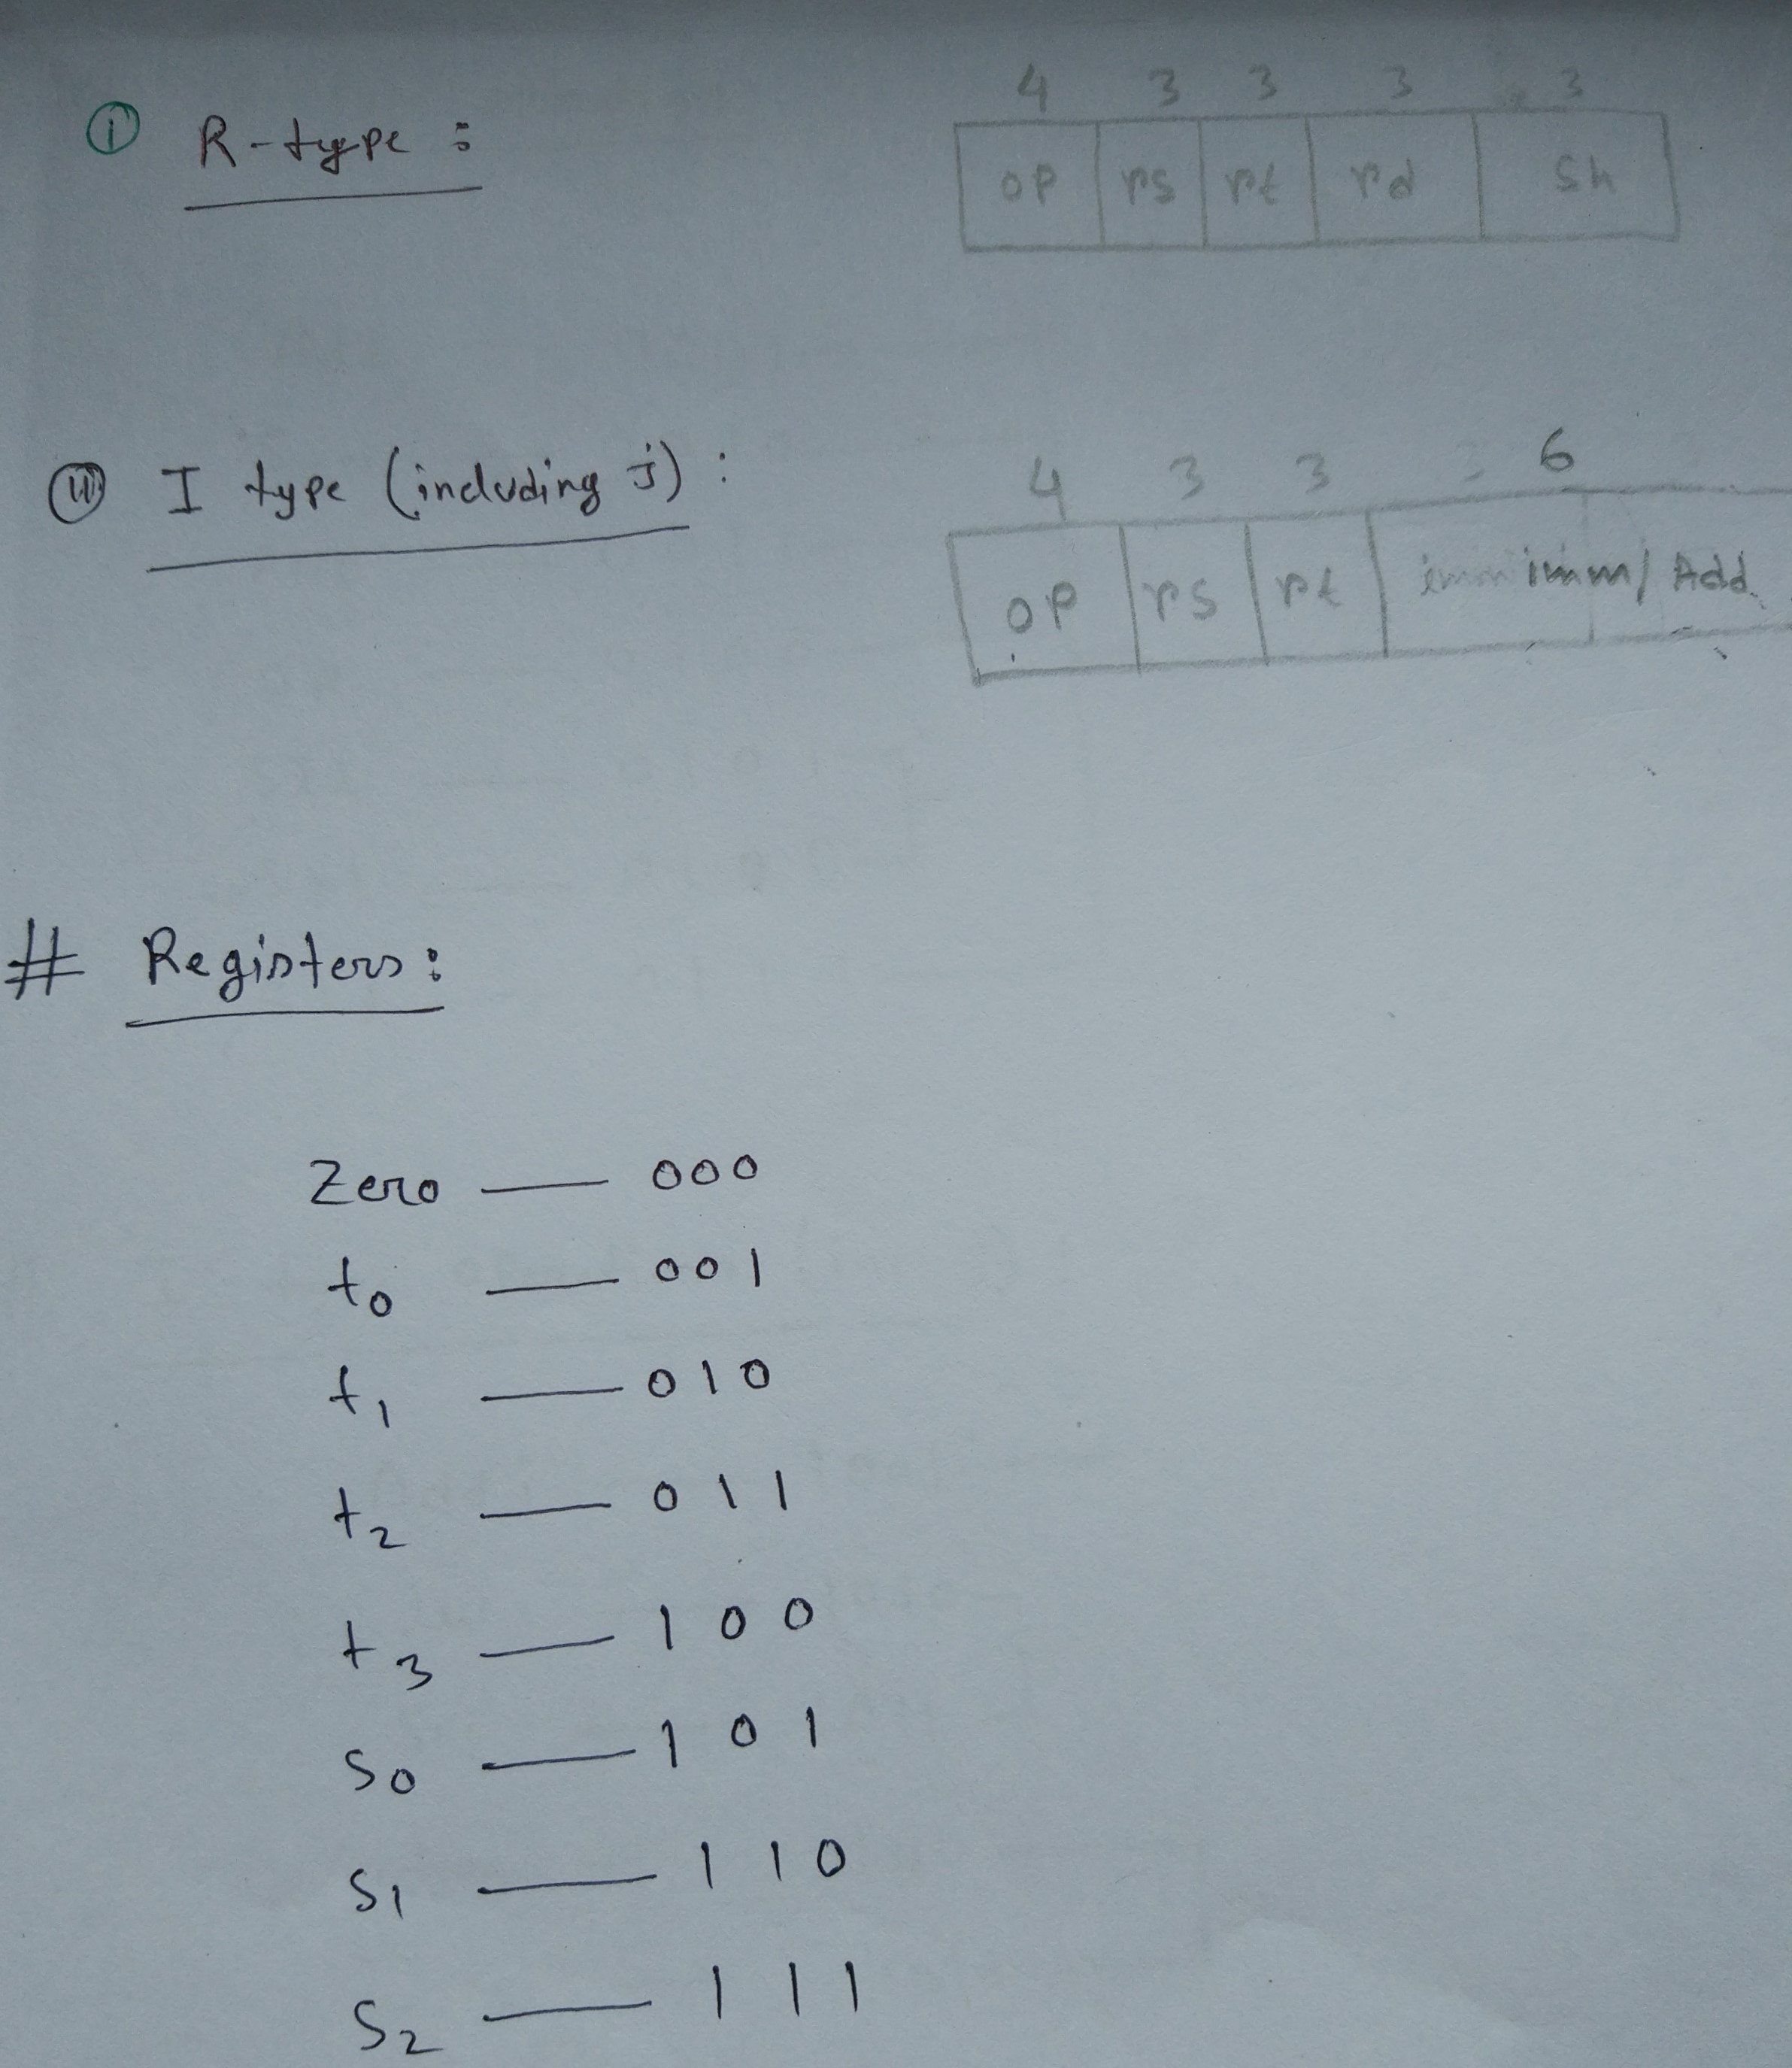 i R-type :
4 3 3 3 3
op rs rt rd sh
ii I type (including j) :
4 3 3 6
op rs rt imm/Add.
# Registers :
Zero — 000
t0 — 001
t1 — 010
t2 — 011
t3 — 100
S0 — 101
S1 — 110
S2 — 111